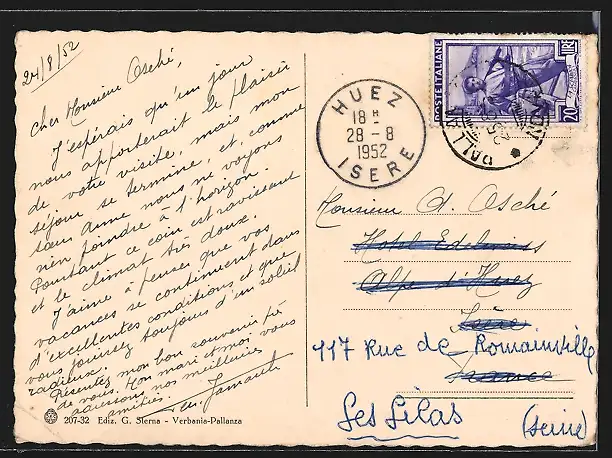 24/8/52
Cher Monsieur Osché,
J'espérais qu'un jour
nous apporterait le plaisir
de votre visite, mais mon
séjour se termine, et, comme
sœur Anne nous ne voyons
rien poindre à l'horizon.
Pourtant ce coin est ravissant
et le climat très doux.
J'aime à penser que vos
vacances se continuent dans
d'excellentes conditions et que
vous jouissez toujours d'un soleil
radieux.
Présentez mon bon souvenir
de vous. Mon mari et moi vous
adressons nos meilleures
amitiés.
207-32 Ediz. G. Sterna - Verbania-Pallanza
POSTE ITALIANE
LIRE
20
HUEZ
18 H
28 - 8
1952
ISERE
Monsieur A. Osché
Hotel Edelweiss
Alpe d'Huez
Isère
117 Rue de Romainville
France
Les Lilas
(Seine)